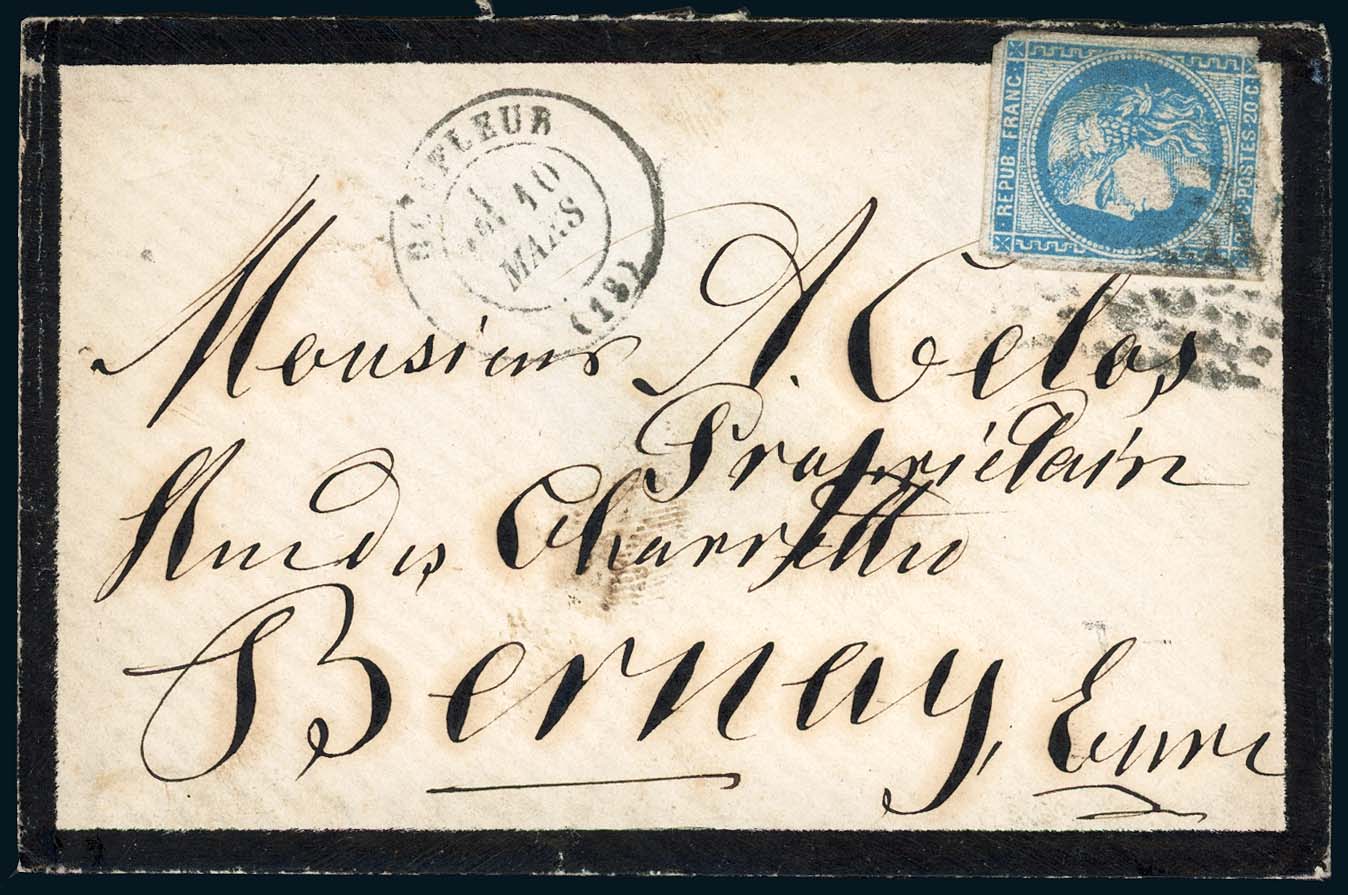 REPUB. FRANC.
POSTES 20 C
FLEUR
10
MARS
(13)
Monsieur A. Celos
Propriétaire
Rue des Charrettes
Bernay, Eure